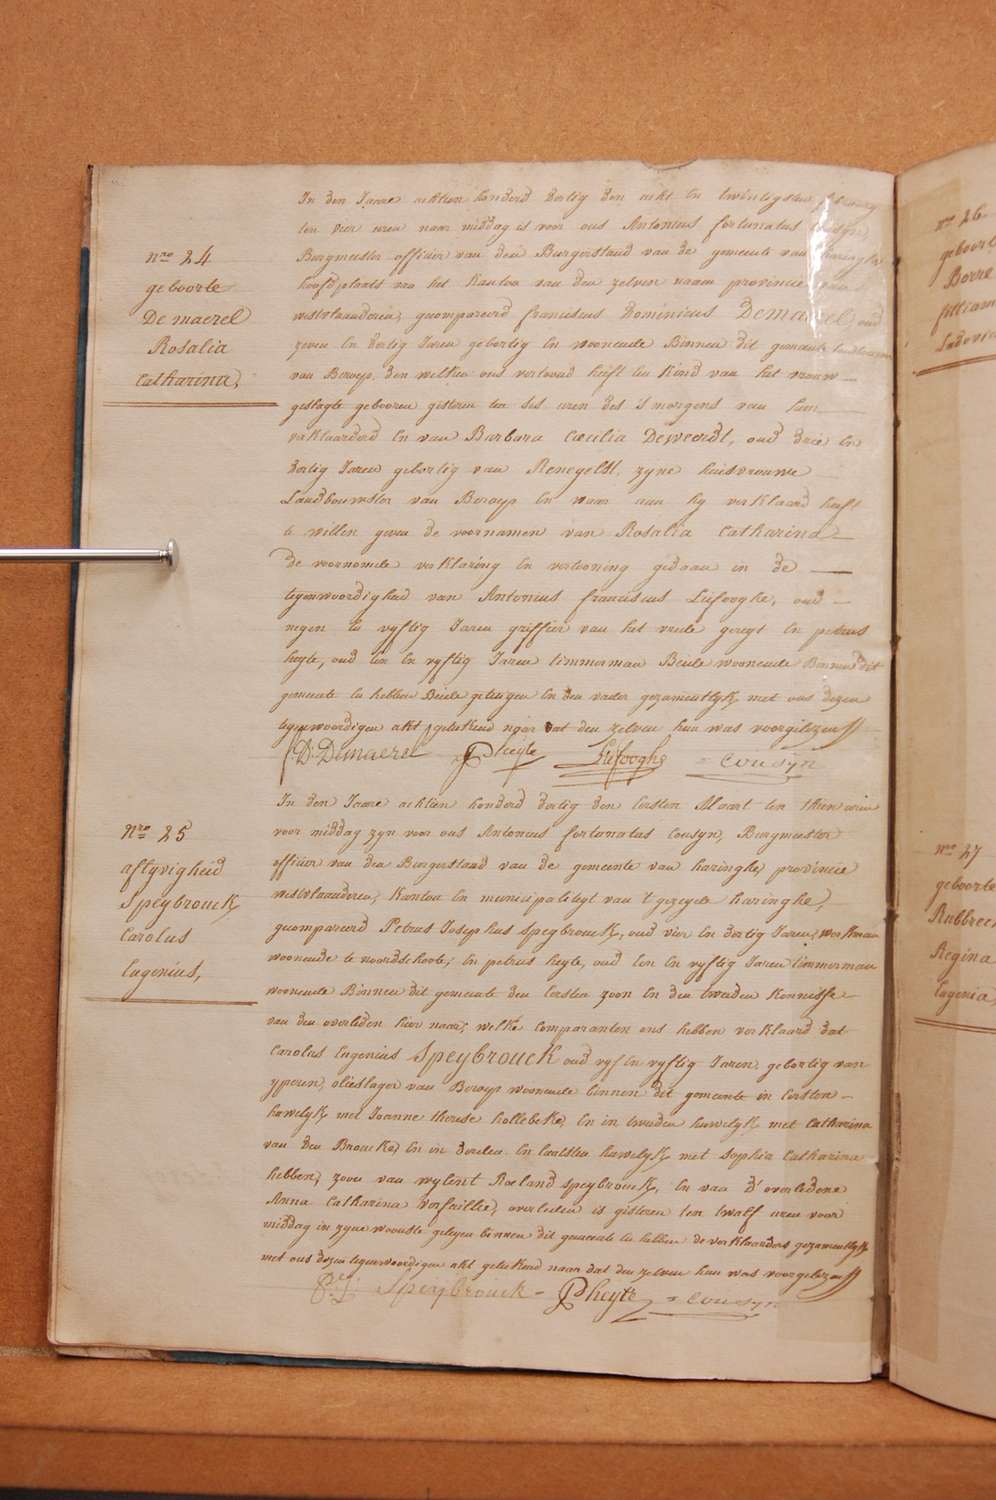 nro 24
geboorte
De maerel
Rosalia
Catharina,
In den Jaare achtien honderd dertig den acht en twintigsten february
ten vier uren naer middag is voor ons Antonius fortunatus Cousyn,
Burgmeester officier van den Burgerstaud van de gemeente van haringhe
hoofdplaats van het kanton van den zelven naam provincie van
westvlaanderen, gecompareerd franciscus Dominicus Demaerel, oud
zeven en dertig Jaren geboortig en woonende Binnen dit gemeente landbouwer
van Beroep, den welken ons vertoond heeft een kind van het vrouw-
geslagte gebooren gisteren ten ses uren des 's morgens van hem
verklaarderd en van Barbara Cecilia Deweerdt, oud drie en
dertig Jaren gebortig van Renegelst, zyne huisvrouwe
Landbouwster van Beroep en waar aan hy verklaard heeft
te willen geven de voornamen van Rosalia Catharina-
De voornomde verklaring en vertooning gedaan in de
tegenwoordigheid van Antonius franciscus Lefooghe, oud-
negen en vyftig Jaren griffier van het vrede geregt en petrus
heyte, oud een en vyftig Jaren timmerman Beide woonende Binnen dit
gemeente en hebben Beide getuigen en den vader gezamentlyk met ons dezen
tegenwoordigen akt geteekend naar dat den zelven hun was voorgelezen
f: D: Demaerel P heyte Lefooghe = cousyn
nro 25
aflyvigheid
Speybrouck
Carolus
Eugenius,
In den Jaare achtien honderd dertig den eersten Maart ten thien uren
voor middag zyn voor ons Antonius fortunatus Cousyn, Burgmeester
officier van den Burgerstaud van de gemeente van haringhe, provincie
westvlaanderen, kanton en municipaliteyt van 't gezeyde haringhe,
gecompareerd Petrus Josephus Speybrouck, oud vier en dertig Jaren, werkman
woonende te noordschoote, en petrus heyte, oud een en vyftig Jaren timmerman
woonende Binnen dit gemeente den eersten zoon en den tweeden kennisse
van den overleden hier naar, welke comparanten ons hebben verklaard dat
Carolus Eugenius Speybrouck oud vyf en vyftig Jaren gebortig van
yperen, olieslager van Beroep woonende binnen dit gemeente in eersten-
huwelyk met Joanne therese hollebeke, en in tweeden huwelyk met Catharina
van den Broucke, en in derden en laatsten huwelyk met Sophia Catharina
hebben, zoon van wylent Roeland Speybrouck, en van d'overledene
Anna Catharina verfaillie, overleden is gisteren ten twalf uren voor
middag in zyne wooninge gelegen binnen dit gemeente en hebben de verklaarders gezamentlyk
met ons dezen tegenwoordigen akt geteekend naar dat den zelven hun was voorgelezen
P: J: Speybrouck - P heyte = cousyn
no 26
geboorte
Borre
no 27
geboorte
Regina
Eugenia